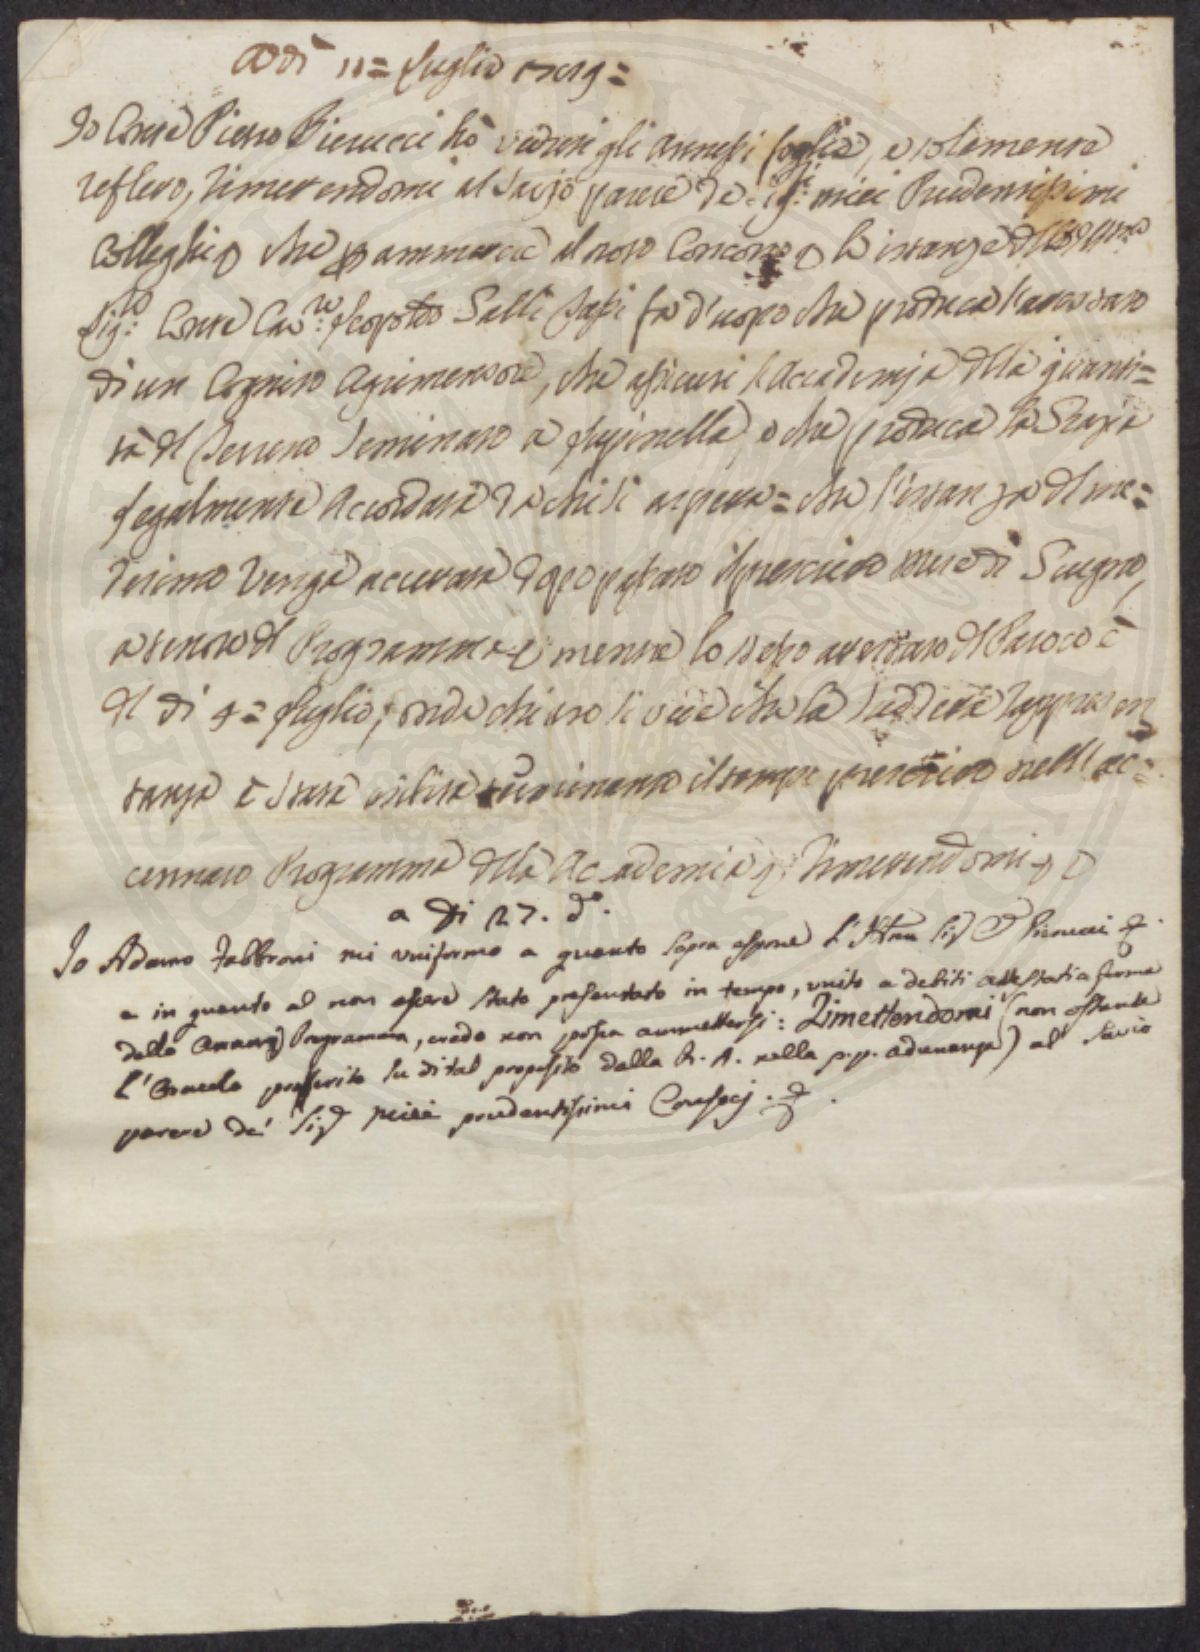 Adì 11= Luglio
Io Conte Pietro Pierucci hò veduti gli annessi foglie, e solamente
refleto, rimettendomi al savjo parere de Sig:ri miei Prudentissimi
Colleghi, che p ammettere al noto Concorso, la istanza dell'
Sig:re Conte Cav:re Leopoldo Galli Tassi fa d'uopo che produca l'attestato
di un Cognito Agrimensore, che assicuri l'Accademja della quanti=
tà del Terreno seminato a Lupinella, o che produca la
Legalmente accordata da chi si aspetta= che l'istanza del me=
desimo venga accettata dopo passato il prescritto mese di Giugno,
a tenore del Programma mentre lo stesso attestato del Paroco è
del dì 4= Luglio, onde chiaro si vede che la suddetta rappresen
tanza è stata esibita il tempo prescritto nell'ac=
cennato Programma della Accademia rimettendomi
a di 27. d.o
Io Adamo Fabbroni mi uniformo a quanto sopra espone l' Sig Pierucci
e in quanto al non essere stato presentato in tempo, unito a debiti attestati a forma
dello Programma, credo non possa ammettersi: Rimettendomi (non ostante
l'Oracolo proferito su di tal proposito dalla R. A. nella p.p. adunanza) al savio
parere de' Sig miei prudentissimi Consocj.